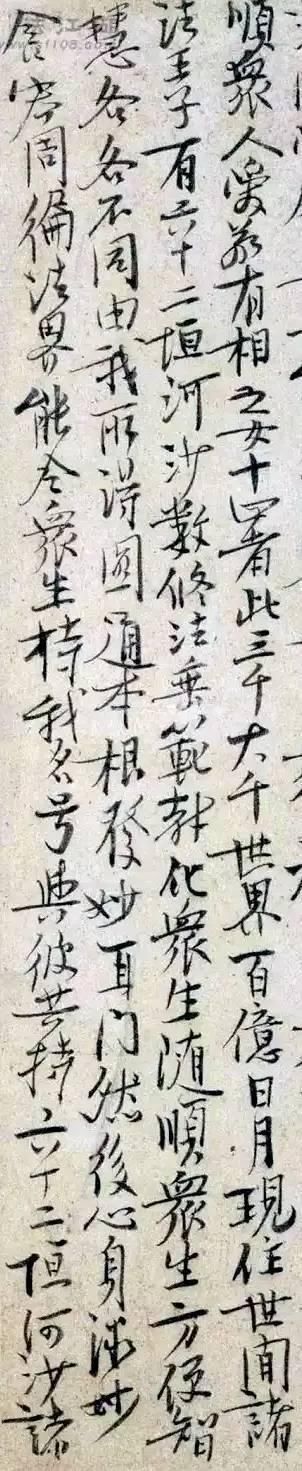 順衆人愛敬有相之女十四者此三千大千世界百億日月現住世間諸
法王子有六十二恒河沙數修法垂範教化衆生随順衆生方便智
慧各各不同由我所得圓通本根發妙耳門然後心身微妙
含容周徧法界能令衆生持我名号與彼共持六十二恒河沙諸